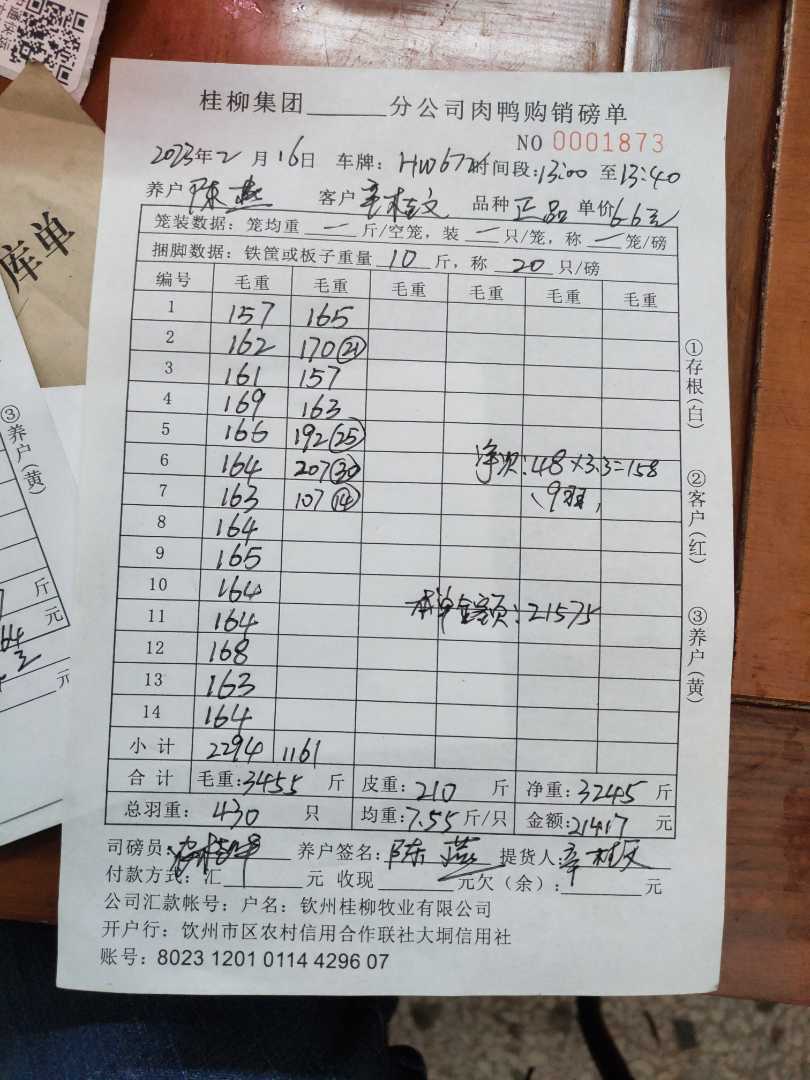 桂柳集团______分公司肉鸭购销磅单
NO 0001873
2023年2月16日 车牌：HW672时间段：13:00至13:40
养户陈燕 客户辛桂文 品种正品 单价6.6元
笼装数据：笼均重 一 斤/空笼，装 一 只/笼，称 一 笼/磅
捆脚数据：铁筐或板子重量 10 斤，称 20 只/磅
编号 毛重 毛重 毛重 毛重 毛重 毛重
1 157 165
2 162 170(21)
3 161 157
4 169 163
5 166 192(25)
6 164 207(30)
7 163 107(14)
8 164
9 165
10 164
11 164
12 168
13 163
14 164
净次：48×3.3=158
、9羽，
本单金额：21575
小计 2294 1161
合计 毛重：3455 斤 皮重：210 斤 净重：3245 斤
总羽重：430 只 均重：7.55斤/只 金额：21417 元
司磅员： 养户签名：陈燕 提货人：辛桂文
付款方式：汇______元 收现______元欠（余）：______元
公司汇款帐号：户名：钦州桂柳牧业有限公司
开户行：钦州市区农村信用合作联社大垌信用社
账号：8023 1201 0114 4296 07
①存根(白)
②客户(红)
③养户(黄)
库单
③养户(黄)
斤
元
元